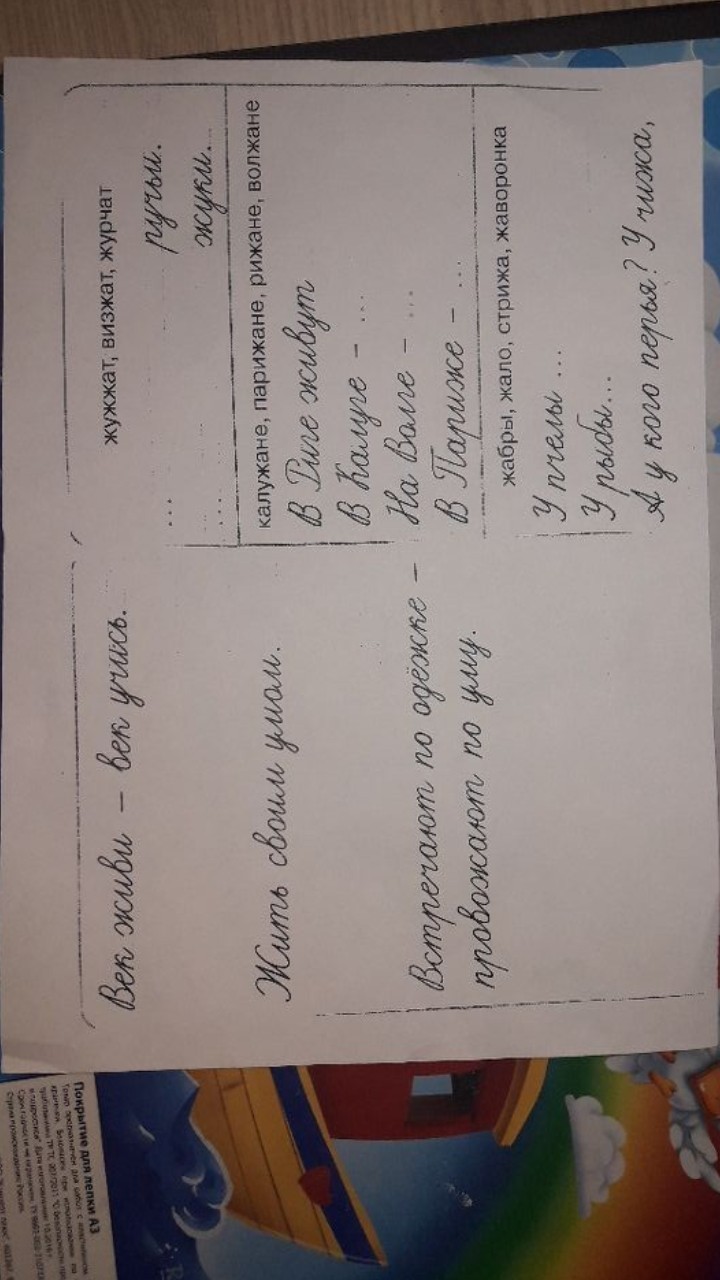 Век живи – век учись.
Жить своим умом.
Встречают по одёжке –
провожают по уму.
жужжат, визжат, журчат
... ручьи.
... жуки...
калужане, парижане, рижане, волжане
В Риге живут
В Калуге – ...
На Волге – ...
В Париже – ...
жабры, жало, стрижа, жаворонка
У пчелы ...
У рыбы...
А у кого перья? У чижа,
Покрытие для лепки А3